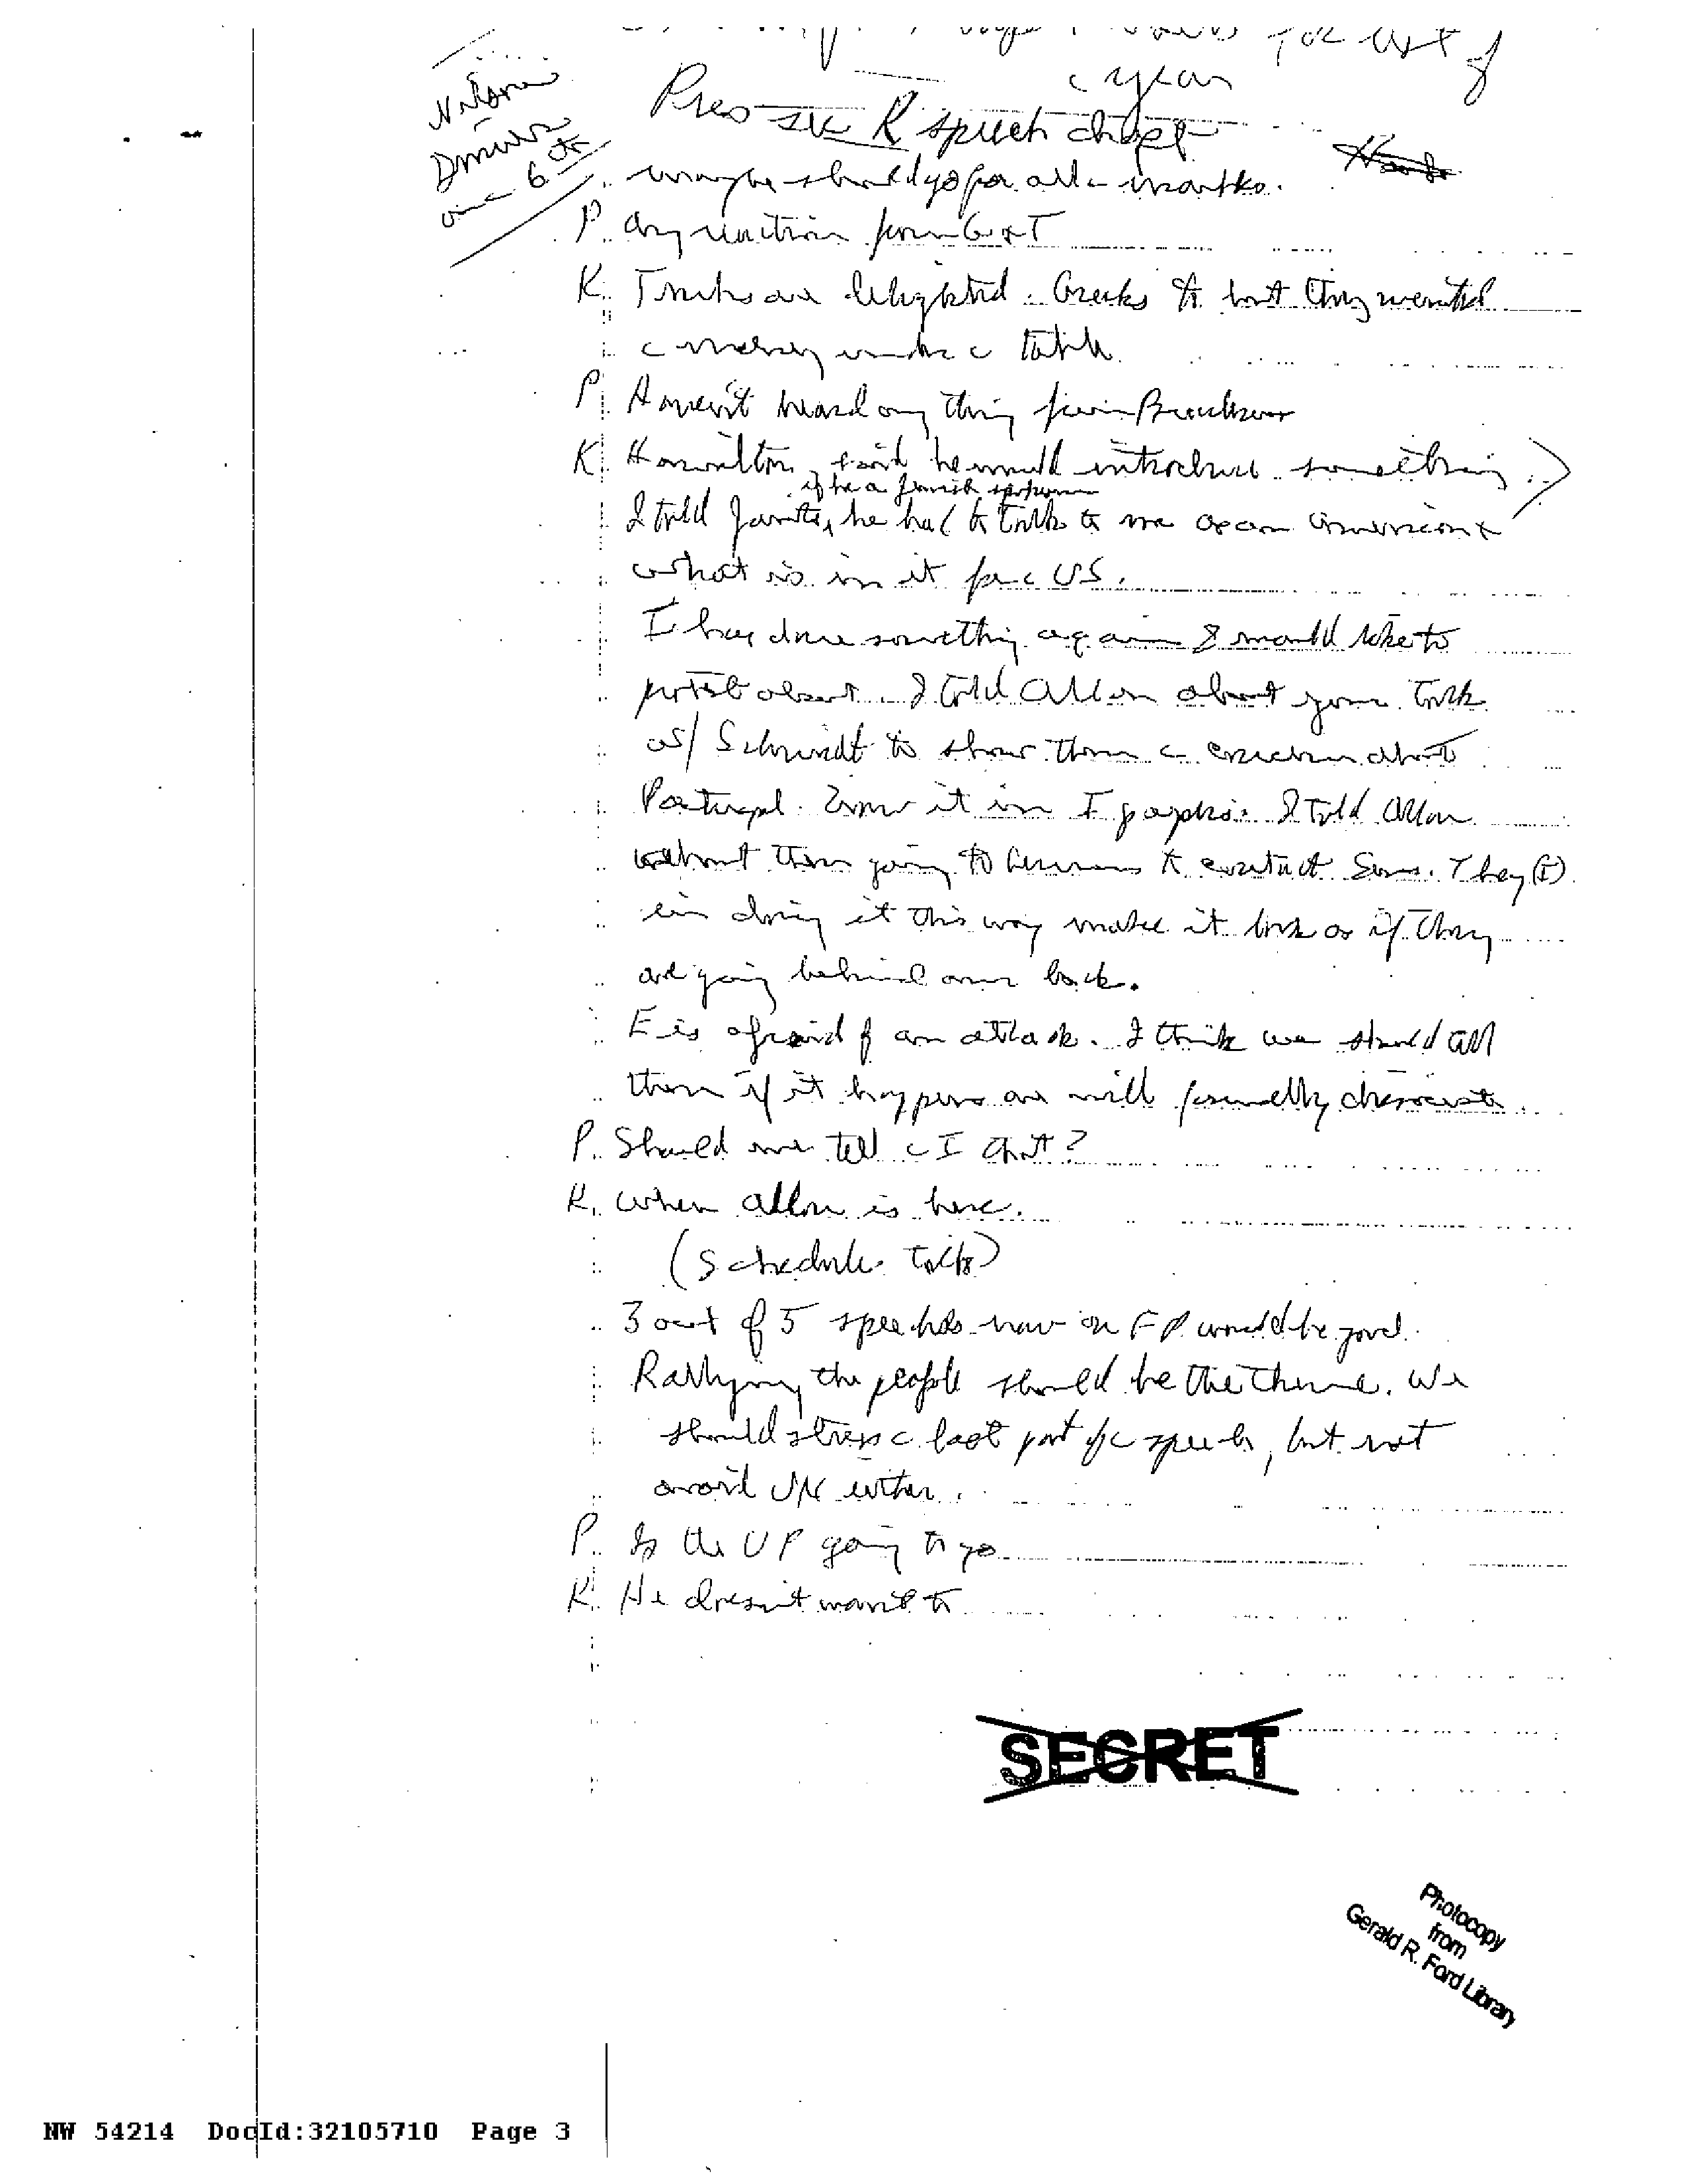 for rest of
c year
Pres K speech draft
6
maybe should go for all c marbles.
P. Any reaction from G & T
K. Turks are delighted. Greeks too but they wanted
c money under c table.
P. Haven't heard anything from
K. Hamilton said he would introduce something.
if he a Jewish spokesman
I told Javits, he had to talk to me as an American &
what is in it for c US.
I have done something again I would like to
about. I told Allon about your talk
w/ Schmidt to show them c about
Portugal. Now it in I papers. I told Allon
without them going to Germans to contact
in doing it this way make it look as if they
are going behind our back.
E is afraid of an attack. I think we should tell
them if it happens we will formally dissociate.
P. Should we tell c I that?
K. When Allon is here.
(Schedule talk)
3 out of 5 speeches now on FP would be good.
Rallying the people should be the theme. We
should stress c last part of c speech, but not
avoid VN either.
P. Is the VP going to go
K. He doesn't want to
SECRET
Photocopy
from
Gerald R. Ford Library
NW 54214 DocId:32105710 Page 3